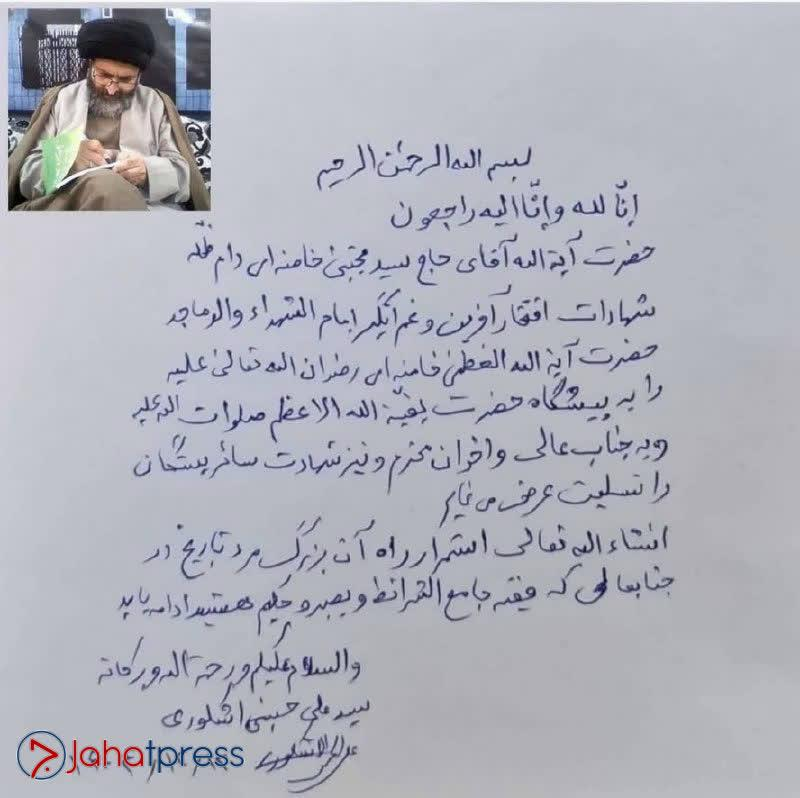 بسم الله الرحمن الرحیم
إنّا لله وإنّا الیه راجعون
حضرت آیة الله آقای حاج سید مجتبی خامنه ای دام ظله
شهادت افتخار آفرین و غم انگیز امام الشهداء والد ماجد
حضرت آیة الله العظمی خامنه ای رضوان الله تعالی علیه
را به پیشگاه حضرت بقیّة الله الاعظم صلوات الله علیه
و به جناب عالی و اخوان محترم و نیز شهادت سائر بستگان
را تسلیت عرض می نمایم
انشاء الله تعالی استمرار راه آن بزرگ مرد تاریخ در
جنابعالی که فقیه جامع الشرائط و بصیر و حکیم هستید ادامه یابد
والسلام علیکم ورحمة الله وبرکاته
سید علی حسینی اشکوری
Jahatpress